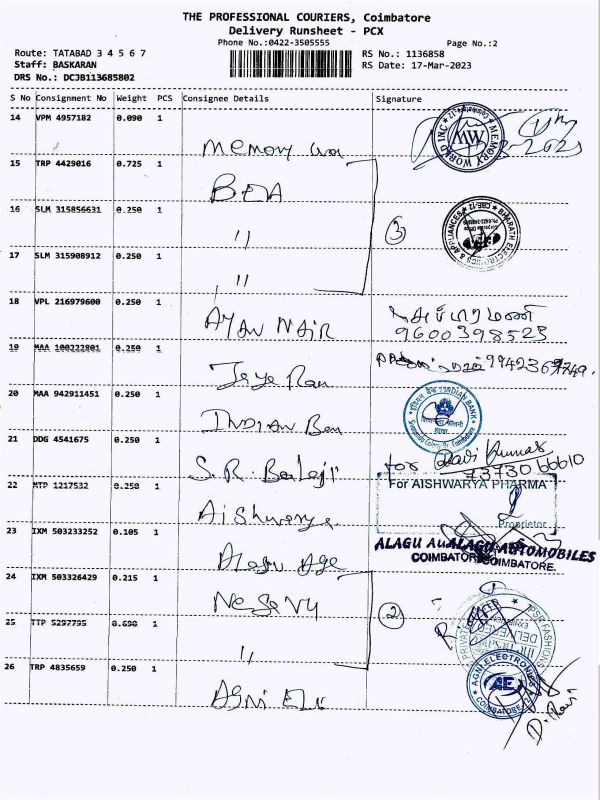 THE PROFESSIONAL COURIERS, Coimbatore
Delivery Runsheet - PCX
Phone No.:0422-3505555
Page No.:2
Route: TATABAD 3 4 5 6 7
RS No.: 1136858
Staff: BASKARAN
RS Date: 17-Mar-2023
DRS No.: DCJB113685802
S No Consignment No Weight PCS Consignee Details Signature
14 VPM 4957182 0.090 1
Memory
MEMORY WORLD INC
MW
15 TRP 4429016 0.725 1
BEA
16 SLM 315856631 0.250 1
"
3
BHARATH ELECTRONICS & APPLIANCES
17 SLM 315908912 0.250 1
"
18 VPL 216979600 0.250 1
AYAN NAIR
9600398523
19 MAA 100222801 0.250 1
Jeya Ram
20 MAA 942911451 0.250 1
INDIAN Ban
INDIAN BANK
21 DDG 4541675 0.250 1
S.R. Balaji
for
Kumar
22 MTP 1217532 0.250 1
Aishwarya
For AISHWARYA PHARMA
Proprietor
23 IXM 503233252 0.105 1
Alagu Age
ALAGU AUTOMOBILES
COIMBATORE.
24 IXM 503326429 0.215 1
2
25 TTP 5297795 0.690 1
"
26 TRP 4835659 0.250 1
Agni Ele
AGNI ELECTRONICS
AE
COIMBATORE
D. Ravi